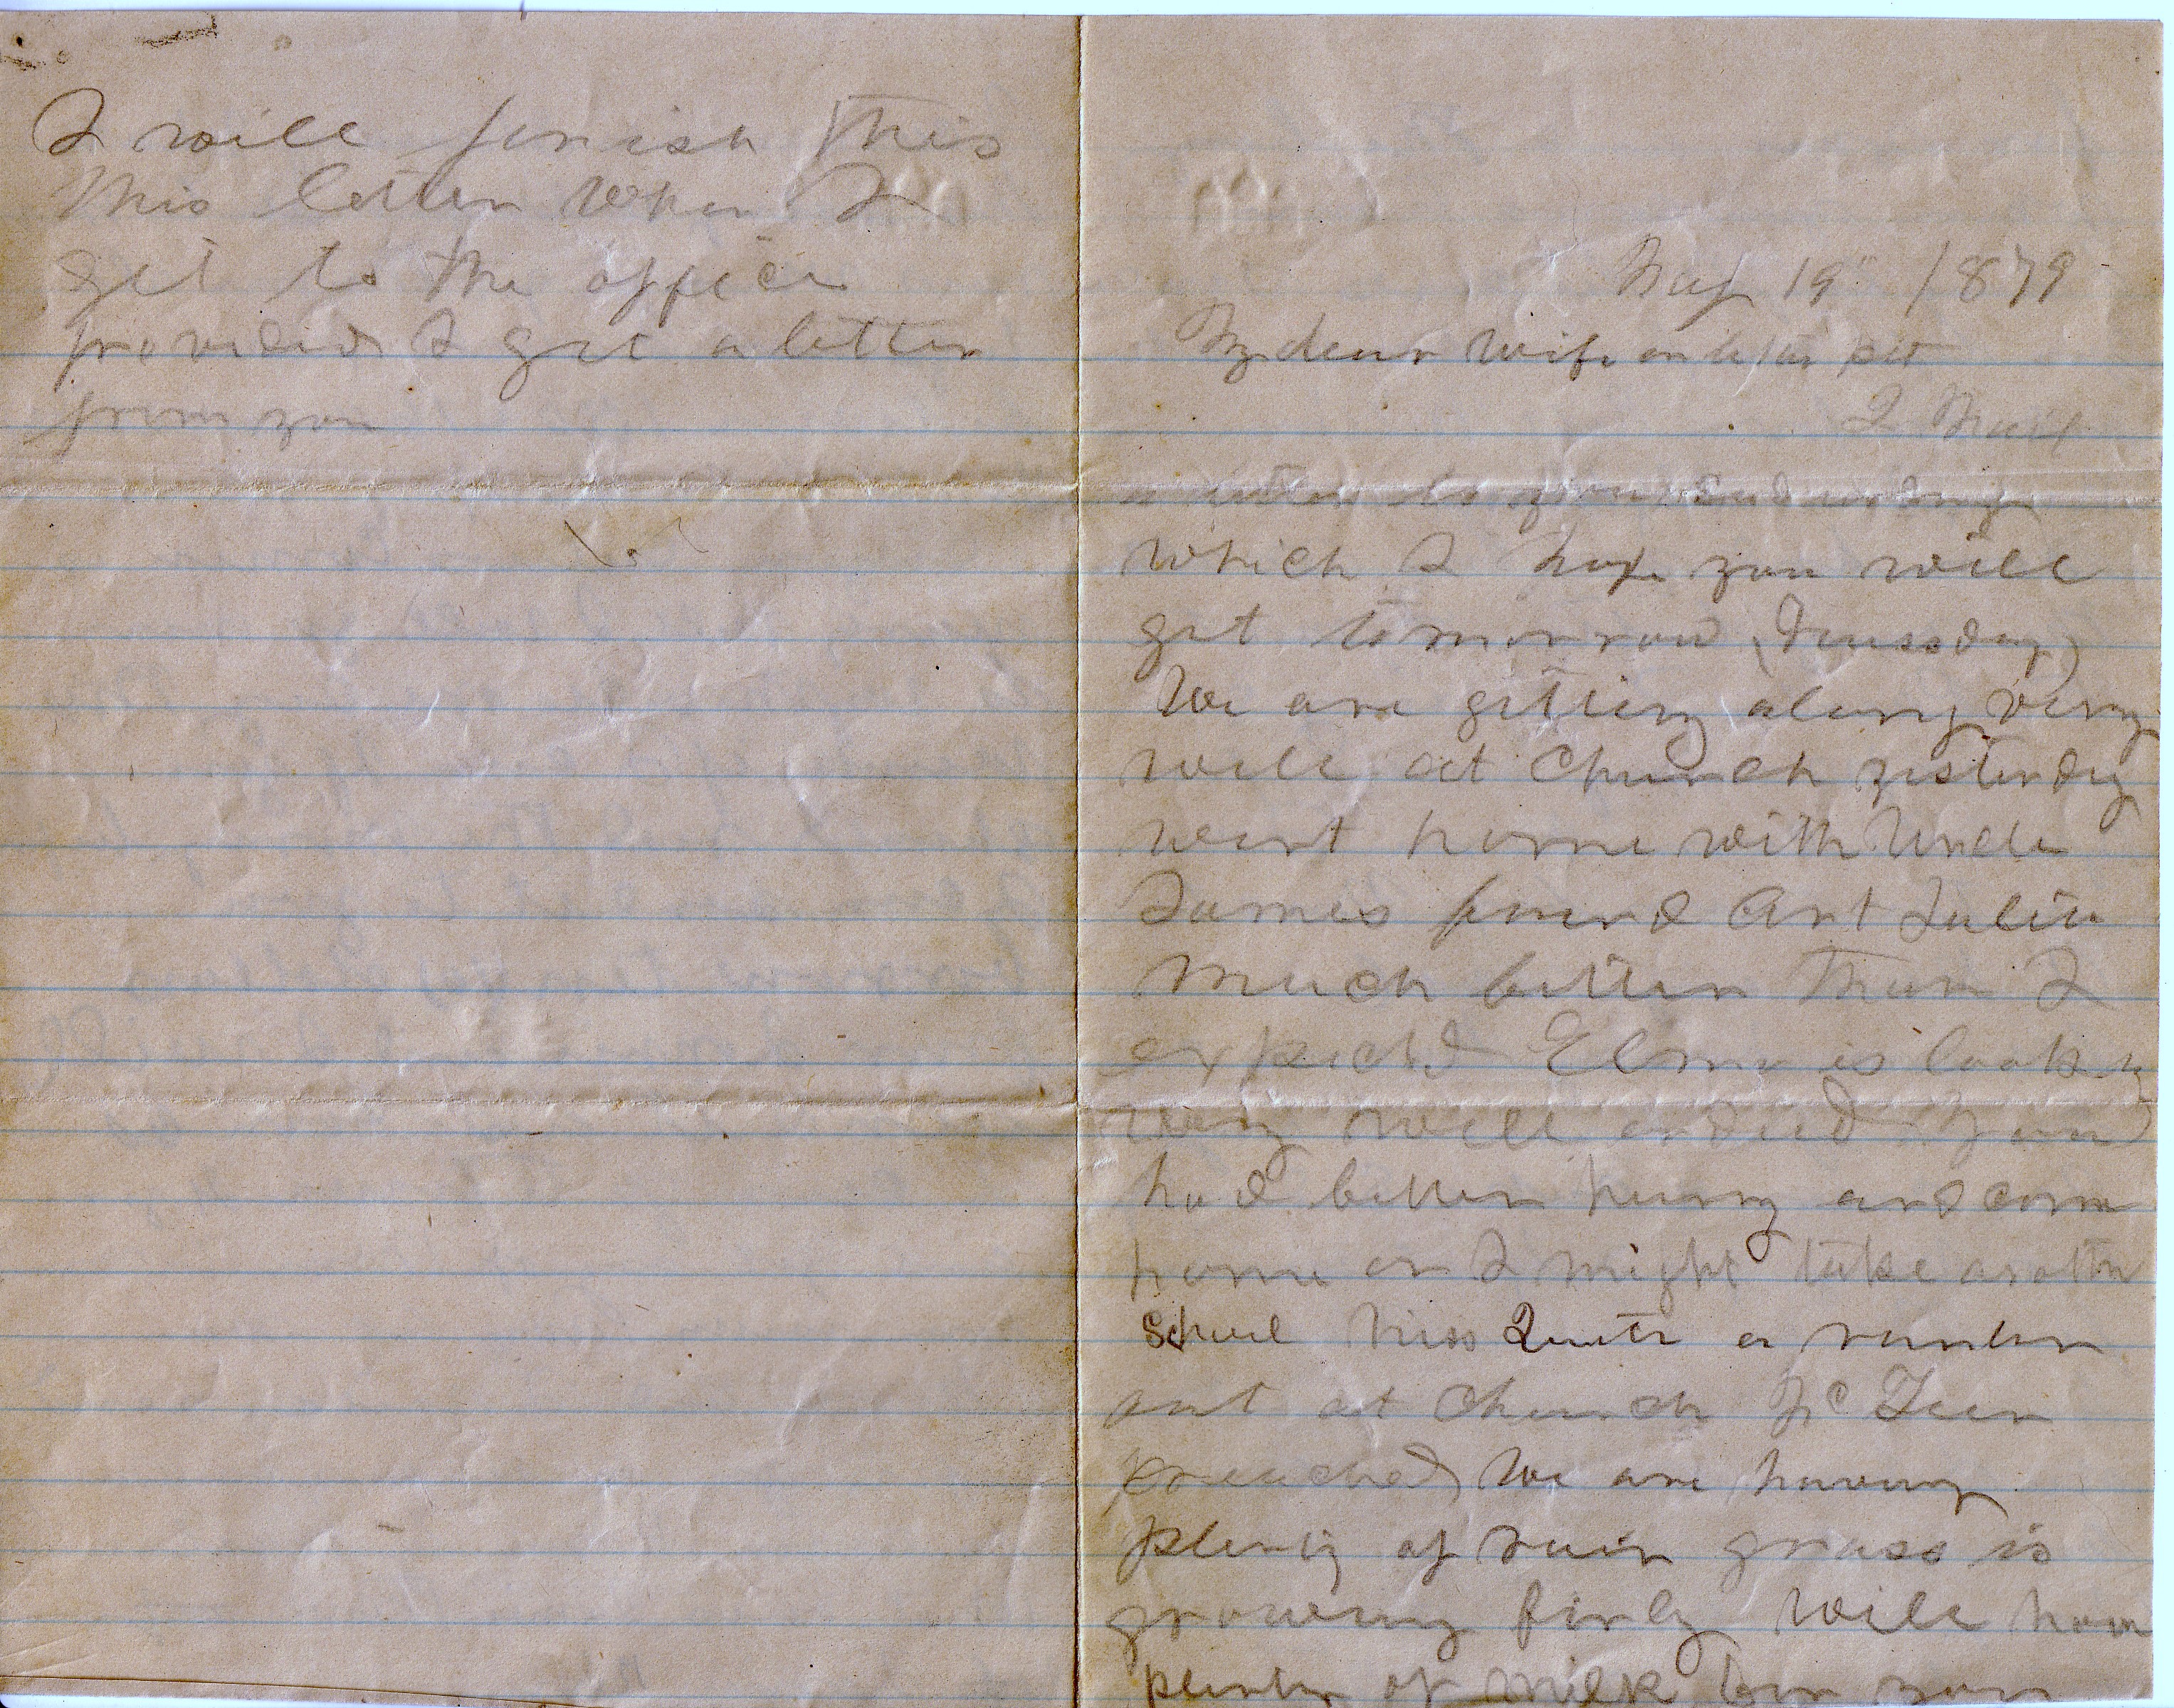 I will finish this
this letter when I
get to the office
provided I get a letter
from you
May 19" 1879
My dear wife
I
a letter to you
which I hope you will
get tomorrow (Tuesday)
We are getting along very
well at Church yesterday
went home with Uncle
James found Ant Julia
much better than I
expected Elma is look
very well indeed you
had better hurry and come
home or I might take another
School quite a number
out at church
preached We are having
plenty of rain grass is
growing finly will have
plenty of milk for you